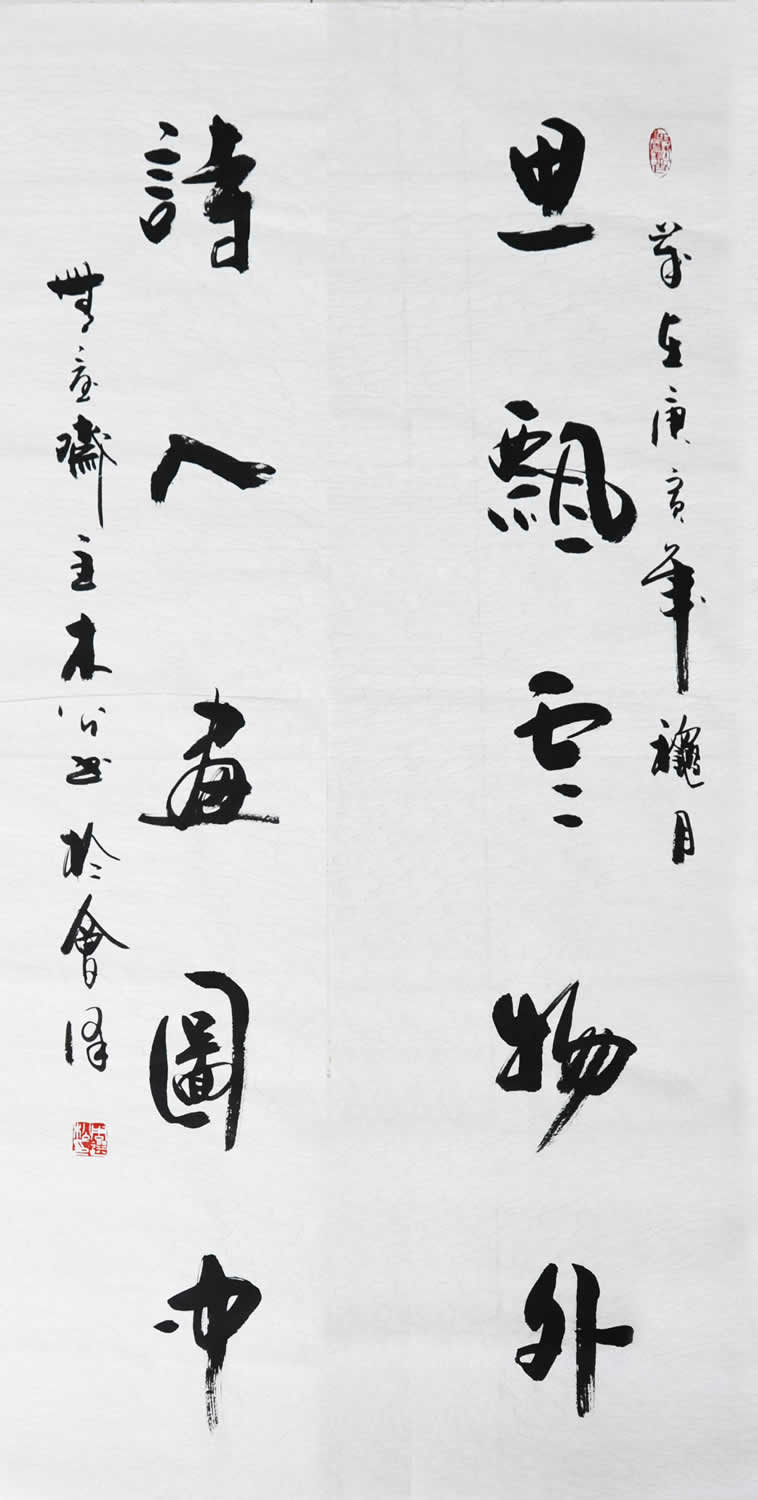 歲在庚寅年龝月
思飄雲物外
詩入畫圖中
無意齋主木公書於會澤